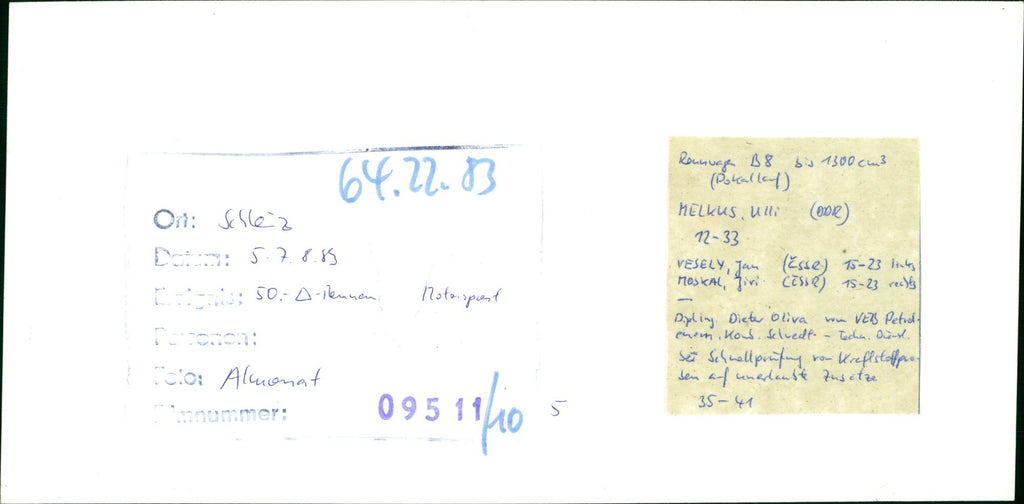 64.22.83
Ort: Schleiz
Datum: 5.-7.8.83
Ereignis: 50.-Δ-Rennen Motorsport
Personen:
Foto: Almonat
Filmnummer: 09511/10 5
Rennwagen B8 bis 1300 cm3
(Pokallauf)
MELKUS, Ulli (DDR)
12-33
VESELY, Jan (ČSSR) 15-23 links
MOSKAL, Jiri (ČSSR) 15-23 rechts
Dipling. Dieter Oliva vom VEB Petrol-
chem. Komb. Schwedt - Techn. Dienst
bei Schnellprüfung von Kraftstoffpro-
ben auf unerlaubte Zusätze
35-41